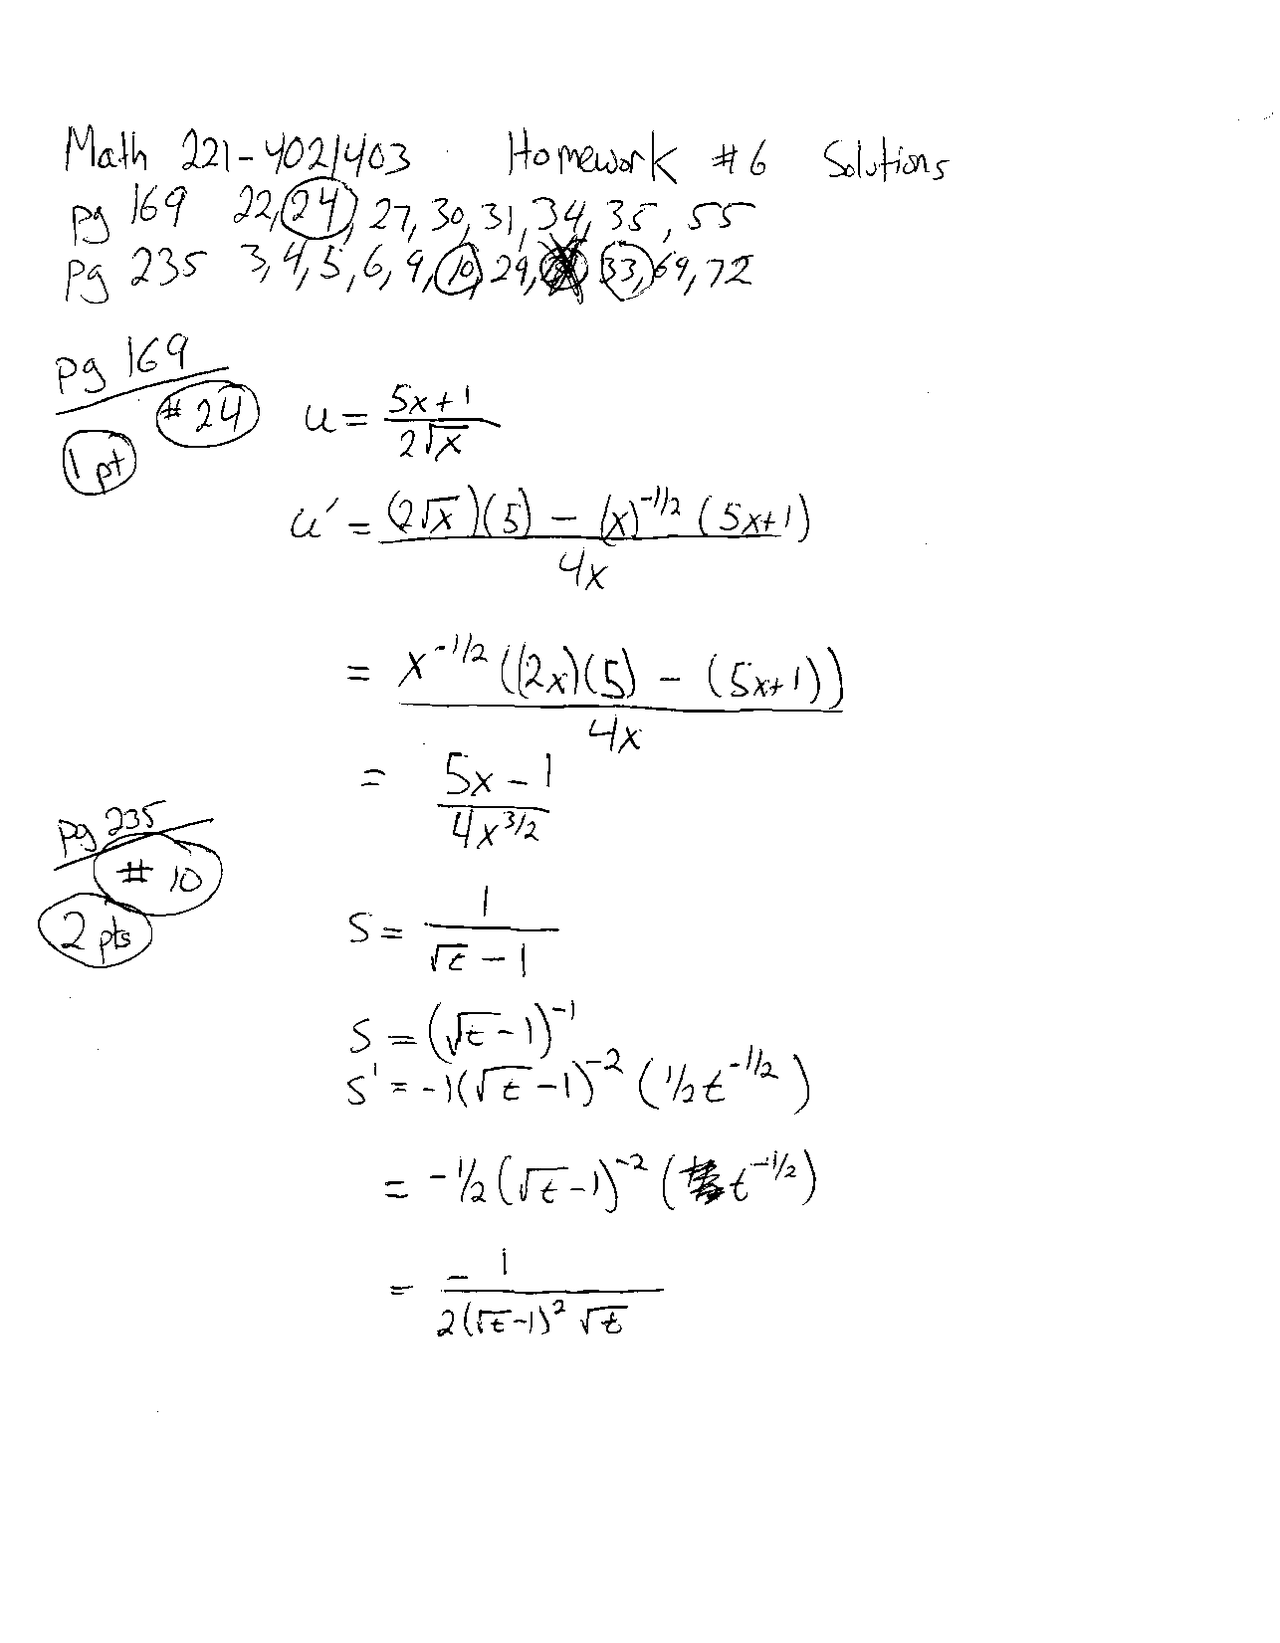 Math 221-402/403 Homework #6 Solutions
pg 169 22, 24, 27, 30, 31, 34, 35, 55
pg 235 3, 4, 5, 6, 9, 10, 29, 33, 69, 72
pg 169
#24
1 pt
u = (5x+1)/(2√x)
u' = ((2√x)(5) - (x)^(-1/2) (5x+1))/(4x)
= (x^(-1/2) ((2x)(5) - (5x+1)))/(4x)
= (5x-1)/(4x^(3/2))
pg 235
#10
2 pts
S = 1/(√t - 1)
S = (√t - 1)^(-1)
S' = -1(√t - 1)^(-2) (1/2 t^(-1/2))
= -1/2 (√t - 1)^(-2) (t^(-1/2))
= -1/(2(√t - 1)^2 √t)